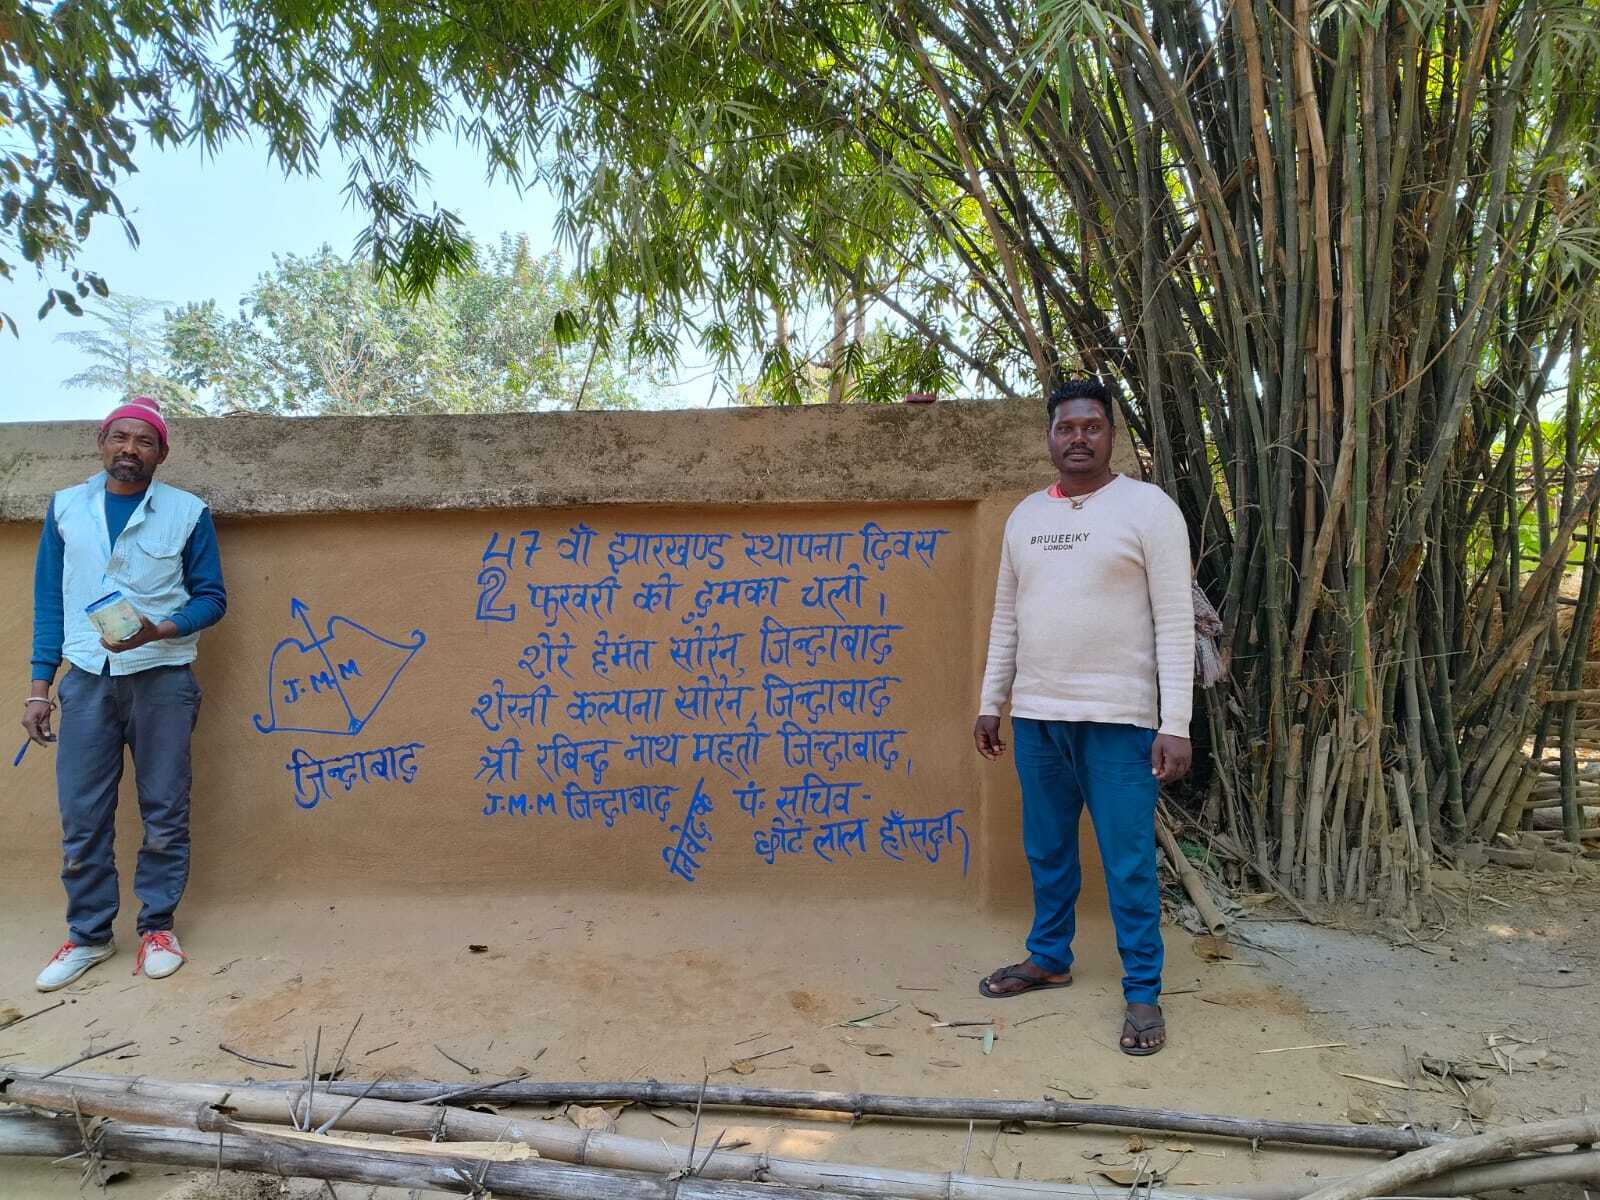 47 वाँ झारखण्ड स्थापना दिवस
2 फरवरी को दुमका चलो।
शेरे हेमंत सोरेन, जिन्दाबाद
शेरनी कल्पना सोरेन, जिन्दाबाद
श्री रबिन्द्र नाथ महतो जिन्दाबाद,
J.M.M जिन्दाबाद
निवेदक
पं. सचिव -
छोटे लाल हाँसदा
J.M.M
जिन्दाबाद
BRUUEEIKY
LONDON